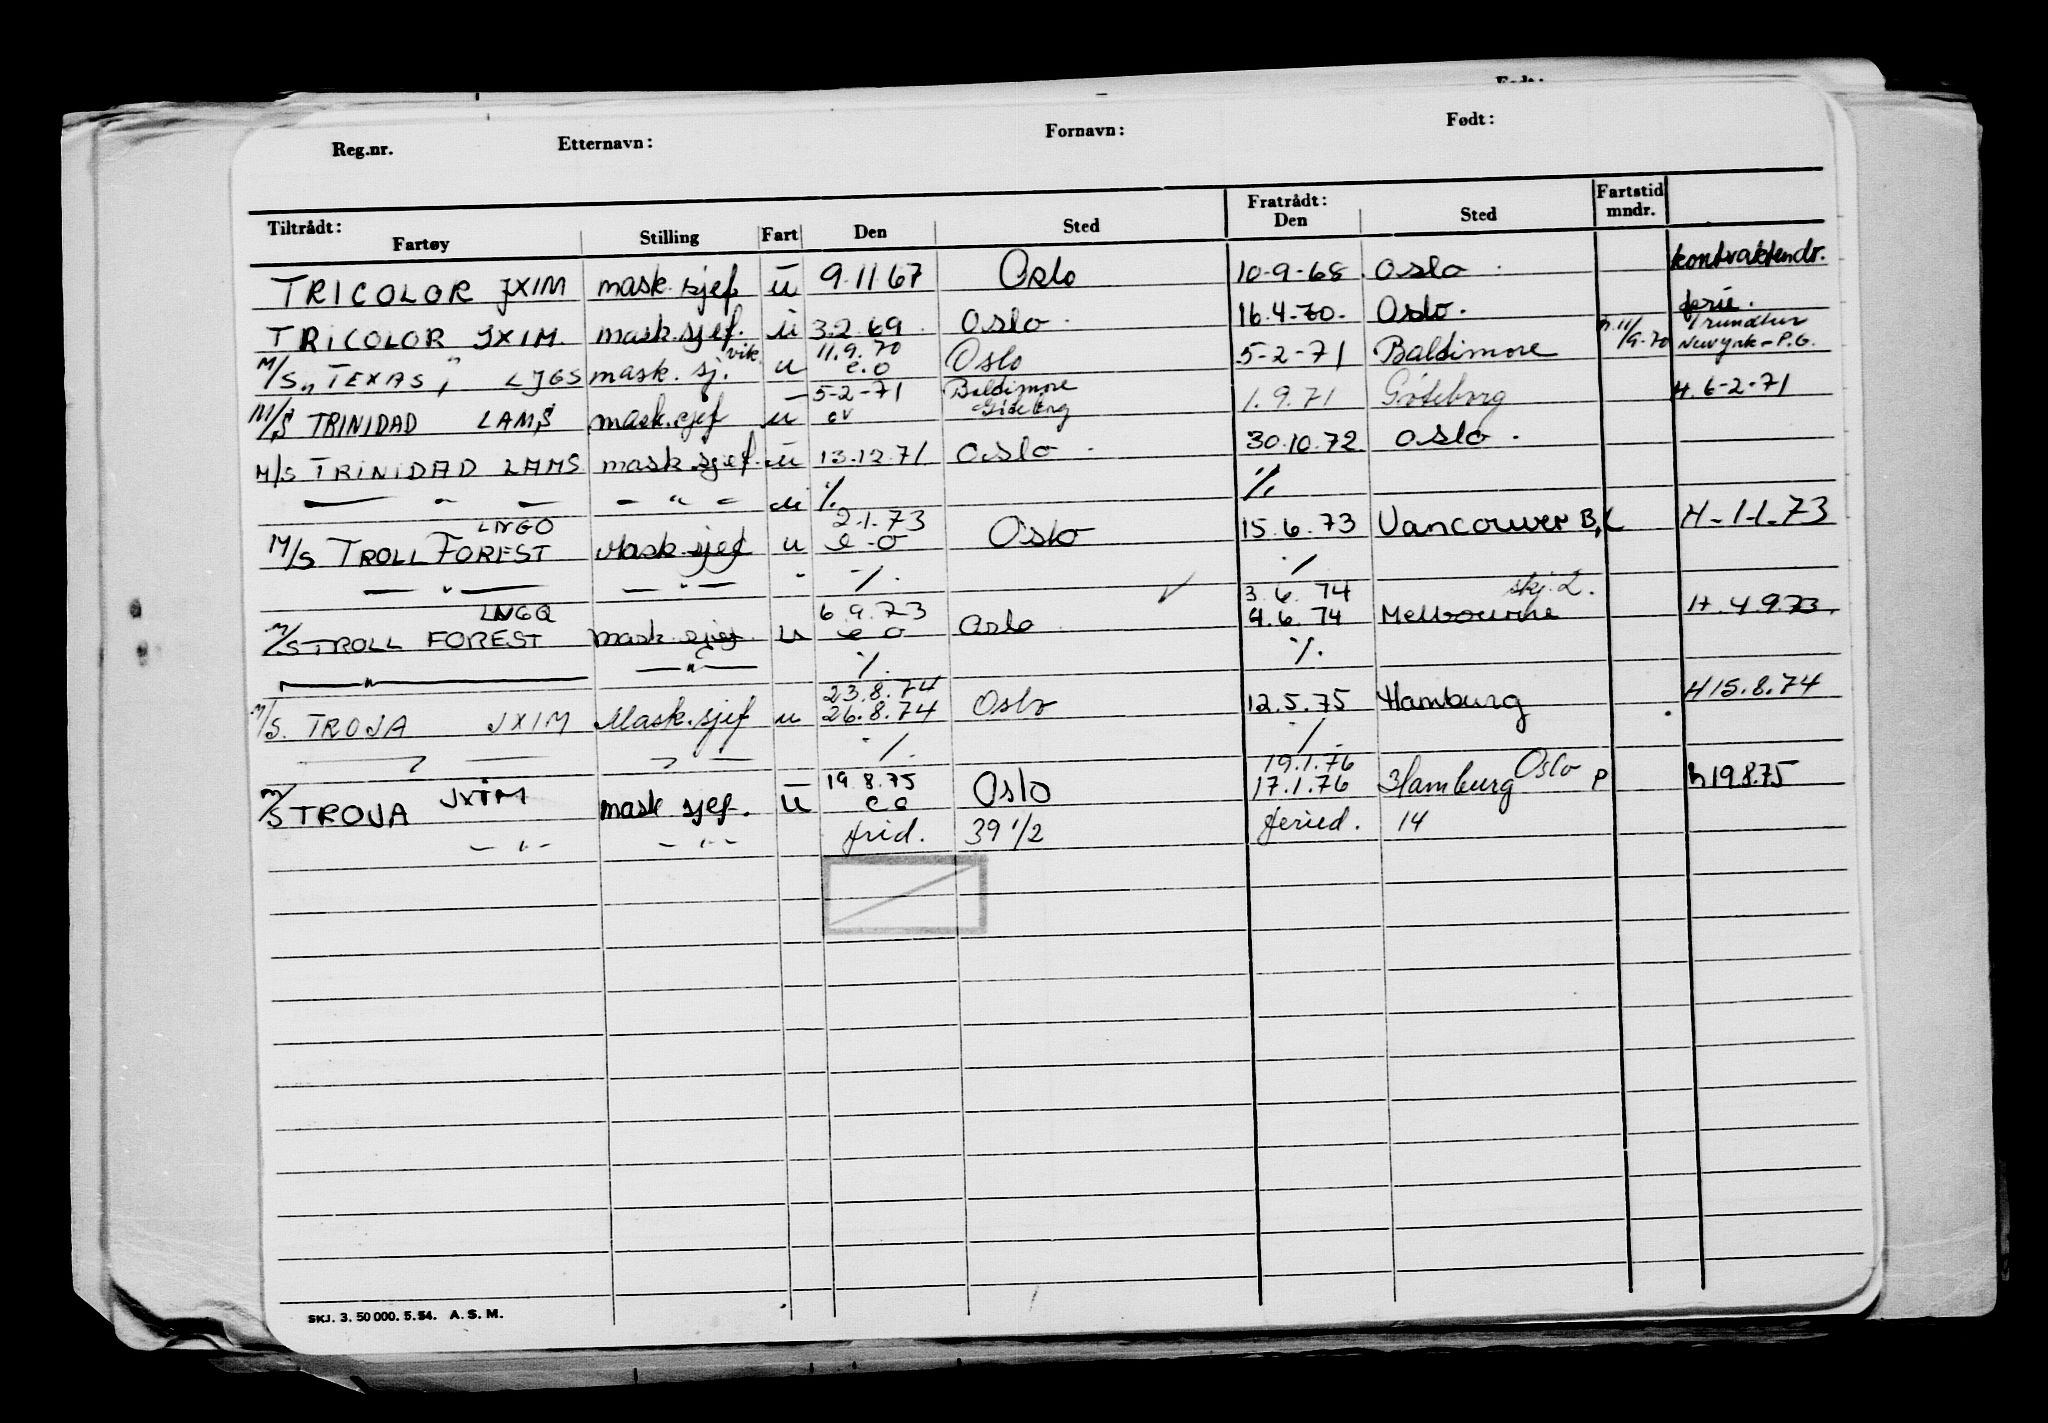 Reg.nr. Etternavn: Fornavn: Født:
Tiltrådt: Fratrådt: Fartstid
Fartøy Stilling Fart Den Sted Den Sted mndr.
TRICOLOR JXIM mask.sjef ü 9.11.67 Oslo 10-9-68. Oslo kontraktendr.
TRICOLOR JXIM mask.sjef. ü 3.2.69 Oslo 16.4-70. Oslo. ferie.
M/S "TEXAS" LJGS mask. sj. vik. u 11.9.70 e.o Oslo 5-2-71 Baltimore 11/9-70 1 rundtur Newyrk-P.G.
M/S TRINIDAD LAMS mask.sjef ü 5-2-71 ov Baltimore Göteborg 1.9.71 Göteborg H. 6-2-71
M/S TRINIDAD LAMS mask.sjef. ü 13.12.71 Oslo 30.10.72 Oslo.
— " — — " — ü ./. ./.
M/S TROLL FOREST LNGO Mask.sjef u 2.1.73 e-o Oslo 15.6.73 Vancouver B.C H-1-1.73
— " — — " — " ./. ./.
M/S TROLL FOREST LNGQ mask.sjef. u 6.9.73 e o Oslo 3.6.74 4.6.74 Melbourne skj.2. H.4.9.73.
— " — — " — ./. ./.
M/S. TROJA JXIM Mask.sjef u 23.8.74 26.8.74 Oslo 12.5.75 Hamburg H 15.8.74
— " — — " — ./. ./.
M/S TROJA JXIM mask sjef. ü 19.8.75 e o Oslo 19.1.76 17.1.76 Hamburg Oslo P h 19.8.75
— " — — " — frid. 39 1/2 feried. 14
SKJ. 3. 50 000. 5.54. A. S. M.